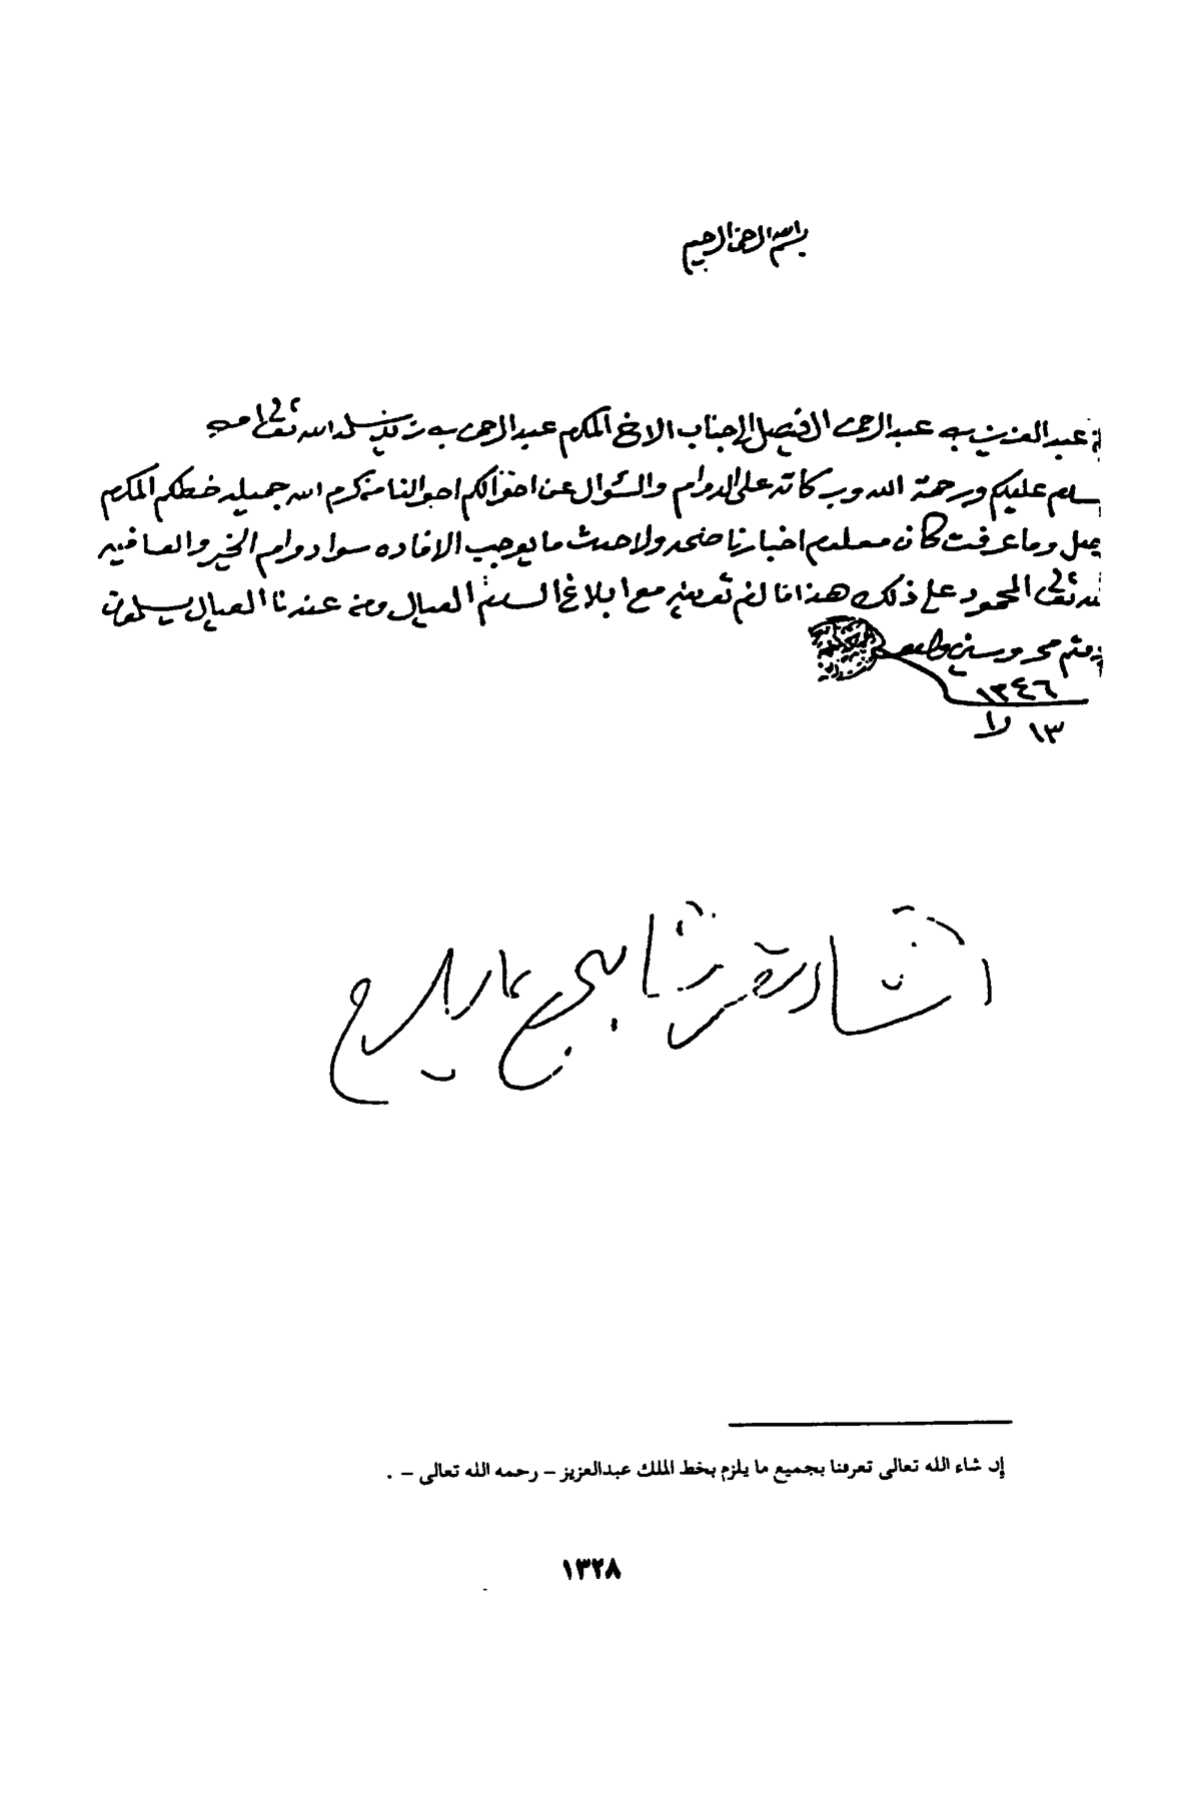 بسم الله الرحمن الرحيم
عبدالعزيز بن عبدالرحمن الفيصل إلى جناب الاخ المكرم عبدالرحمن بن سلمه الله تعالى امين
سلام عليكم ورحمة الله وبركاته على الدوام والسئوال عن احوالكم احوالنا من كرم الله جميله خطكم المكرم
وصل وما عرفت كان معلوم اخبارنا ولا حدث ما يوجب الافاده سوا دوام الخير والعافيه
لله تعالى المحمود على ذلك هذا ما لزم تعريفه مع ابلاغ السلام العيال ومن عندنا العيال يسلمون
ودمتم محروسين والسلام
١٣٤٦
١٣ را
انشاء الله تعرفنا بجميع ما يلزم
إن شاء الله تعالى تعرفنا بجميع ما يلزم بخط الملك عبدالعزيز – رحمه الله تعالى – .
١٣٢٨